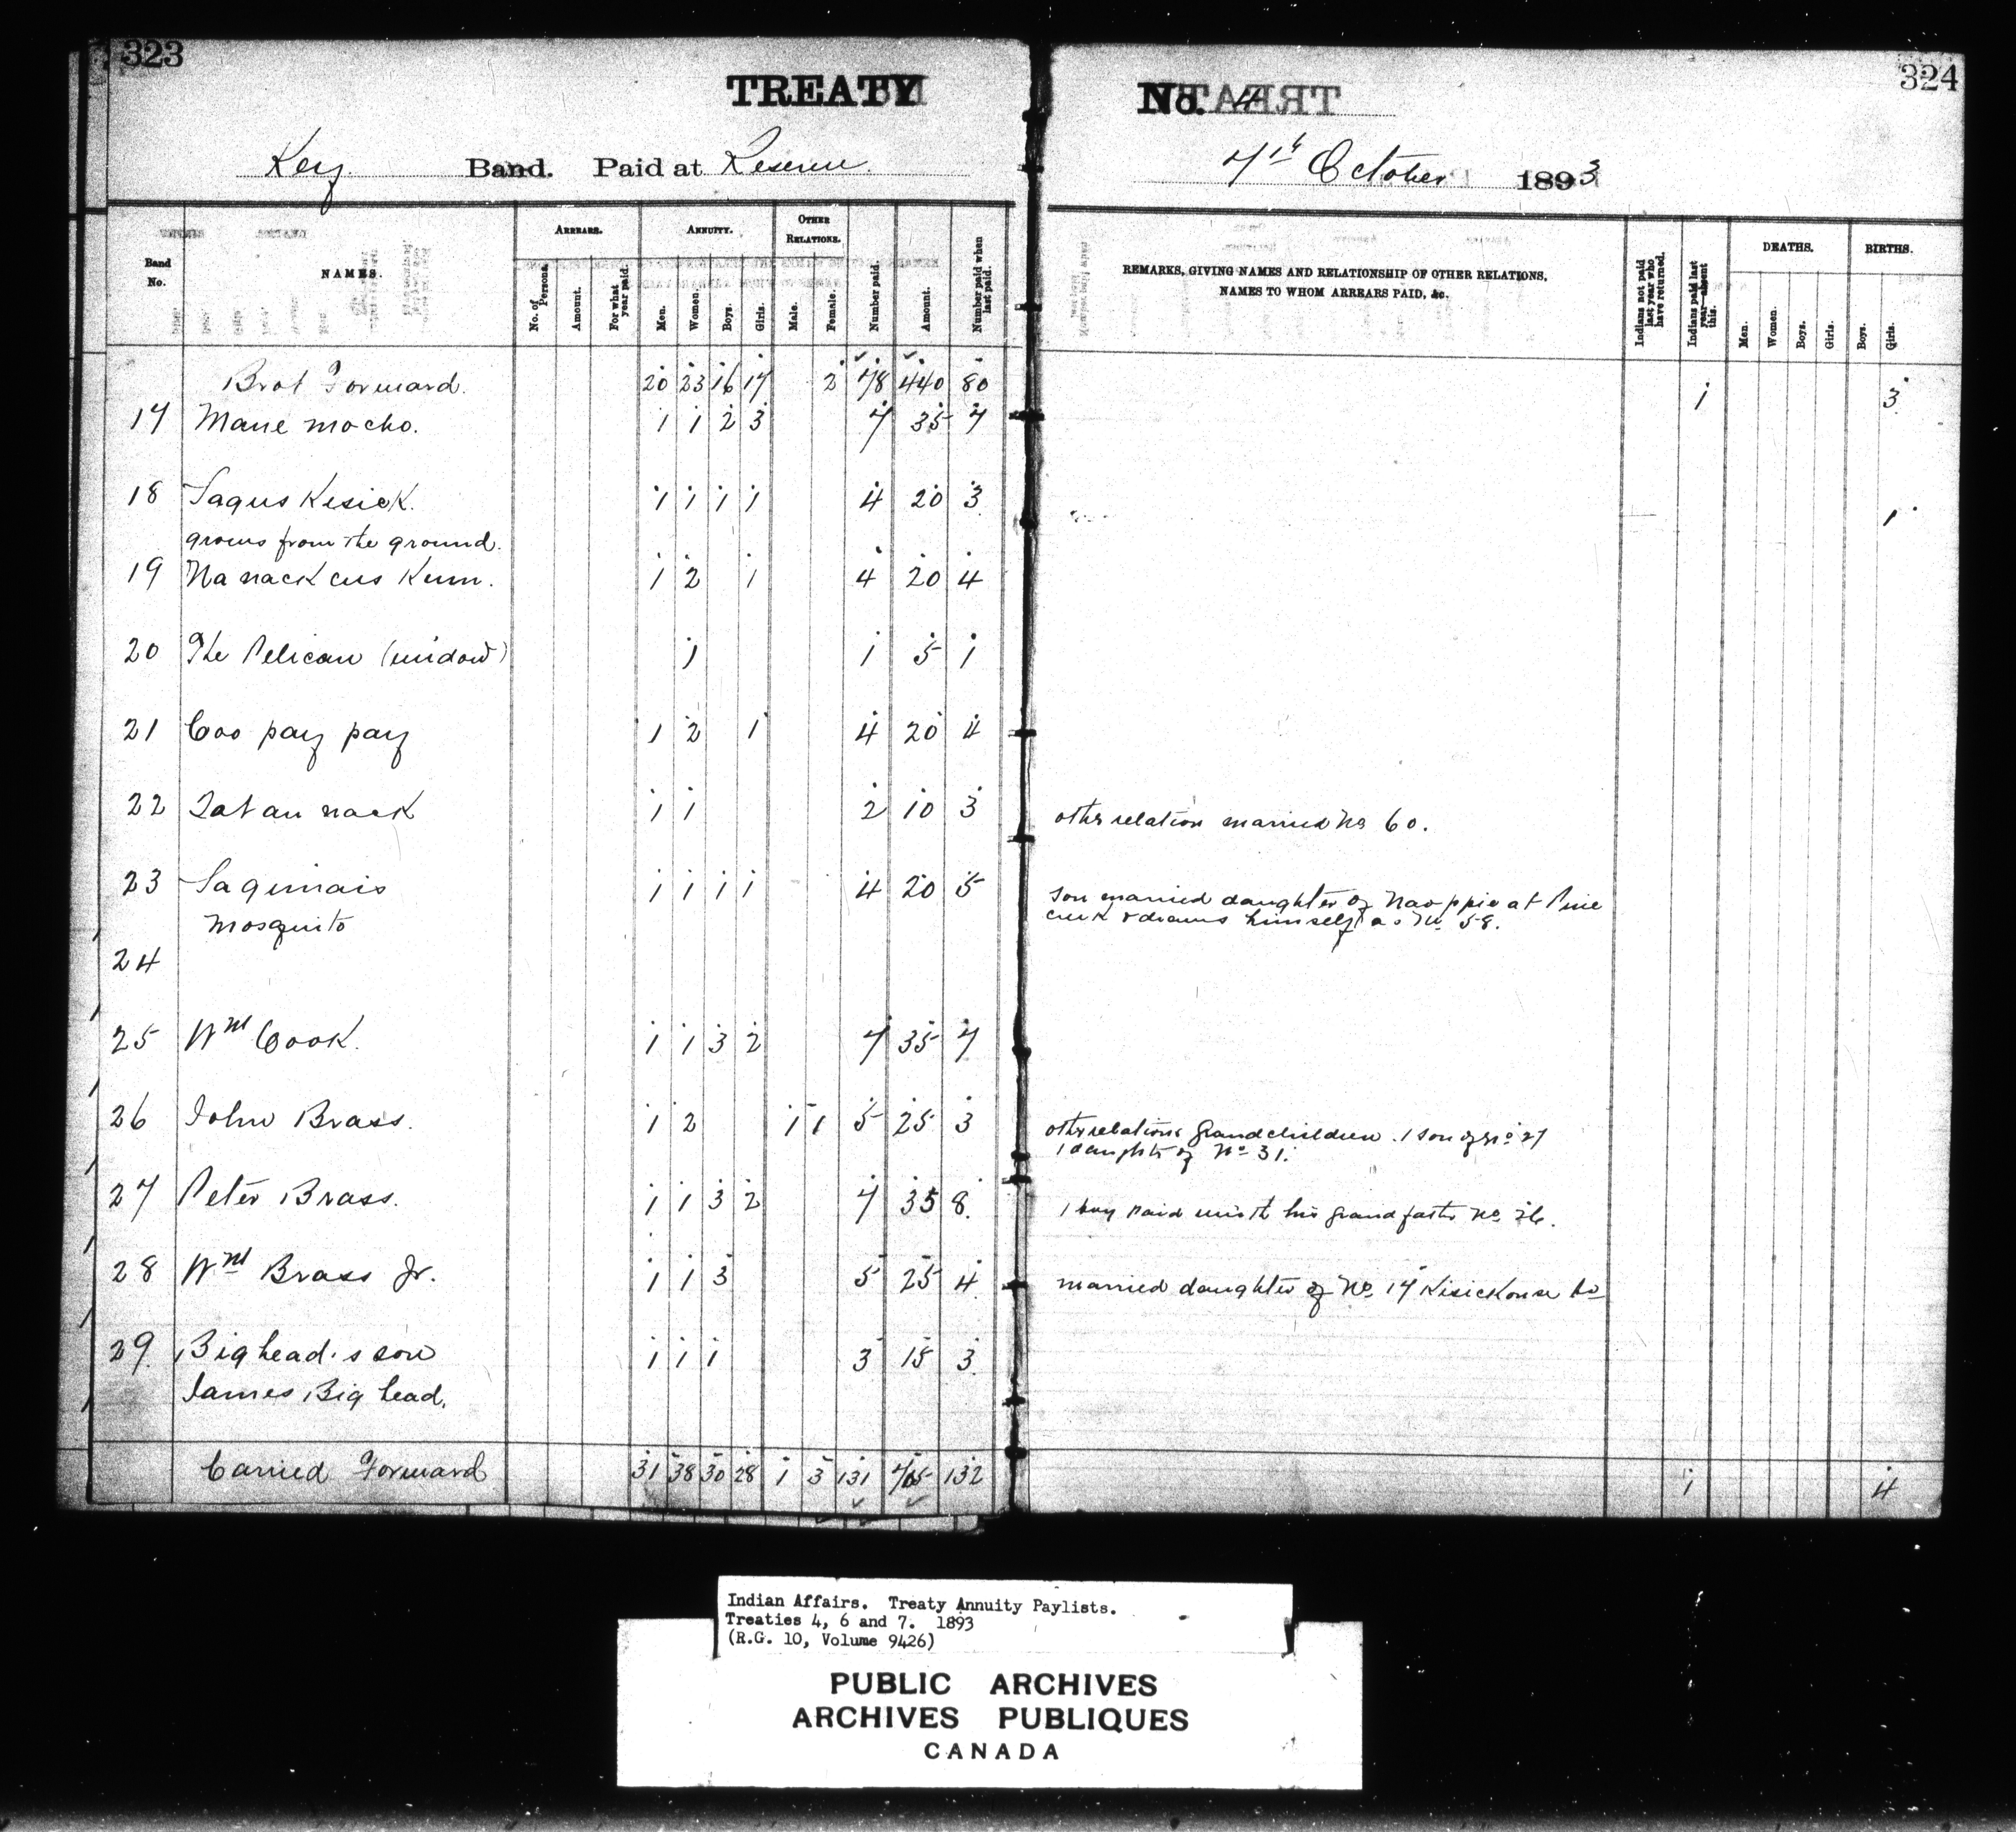 323
324
TREATY No. 4
Key Band. Paid at Reserve 7th October 1893
Band No.
NAMES.
ARREARS.
No. of Persons.
Amount.
For what year paid.
ANNUITY.
Men.
Women.
Boys.
Girls.
OTHER RELATIONS.
Male.
Female.
Number paid.
Amount.
Number paid when last paid.
REMARKS, GIVING NAMES AND RELATIONSHIP OF OTHER RELATIONS, NAMES TO WHOM ARREARS PAID, &c.
Indians not paid last year who have returned.
Indians paid last year—absent this.
DEATHS.
Men.
Women.
Boys.
Girls.
BIRTHS.
Boys.
Girls.
Brot Forward. 20 23 16 17 2 78 440 80 1 3
17 Mane mocho. 1 1 2 3 7 35 7
18 Saqus Kesick. 1 1 1 1 4 20 3 1
grows from the ground.
19 Na nack cus Kum. 1 2 1 4 20 4
20 The Pelican (widow) 1 1 5 1
21 Coo pay pay 1 2 1 4 20 4
22 Tat au nack 1 1 2 10 3 other relation married No 60.
23 Saquimais 1 1 1 1 4 20 5 son married daughter of Naoppie at Pine
Mosquito creek & draws himself as No. 58.
24
25 Wm Cook. 1 1 3 2 7 35 7
26 John Brass. 1 2 1 1 5 25 3 other relations Grandchildren. 1 son of No 27
1 daughter of No 31.
27 Peter Brass. 1 1 3 2 7 35 8. 1 boy paid with his grandfather No. 26.
28 Wm Brass Jr. 1 1 3 5 25 4. married daughter of No. 17 Kisickouse Bd
29. Big head's son 1 1 1 3 15 3
James Big head.
Carried Forward 31 38 30 28 1 3 131 705 132 1 4
Indian Affairs. Treaty Annuity Paylists.
Treaties 4, 6 and 7. 1893
(R.G. 10, Volume 9426)
PUBLIC ARCHIVES
ARCHIVES PUBLIQUES
CANADA